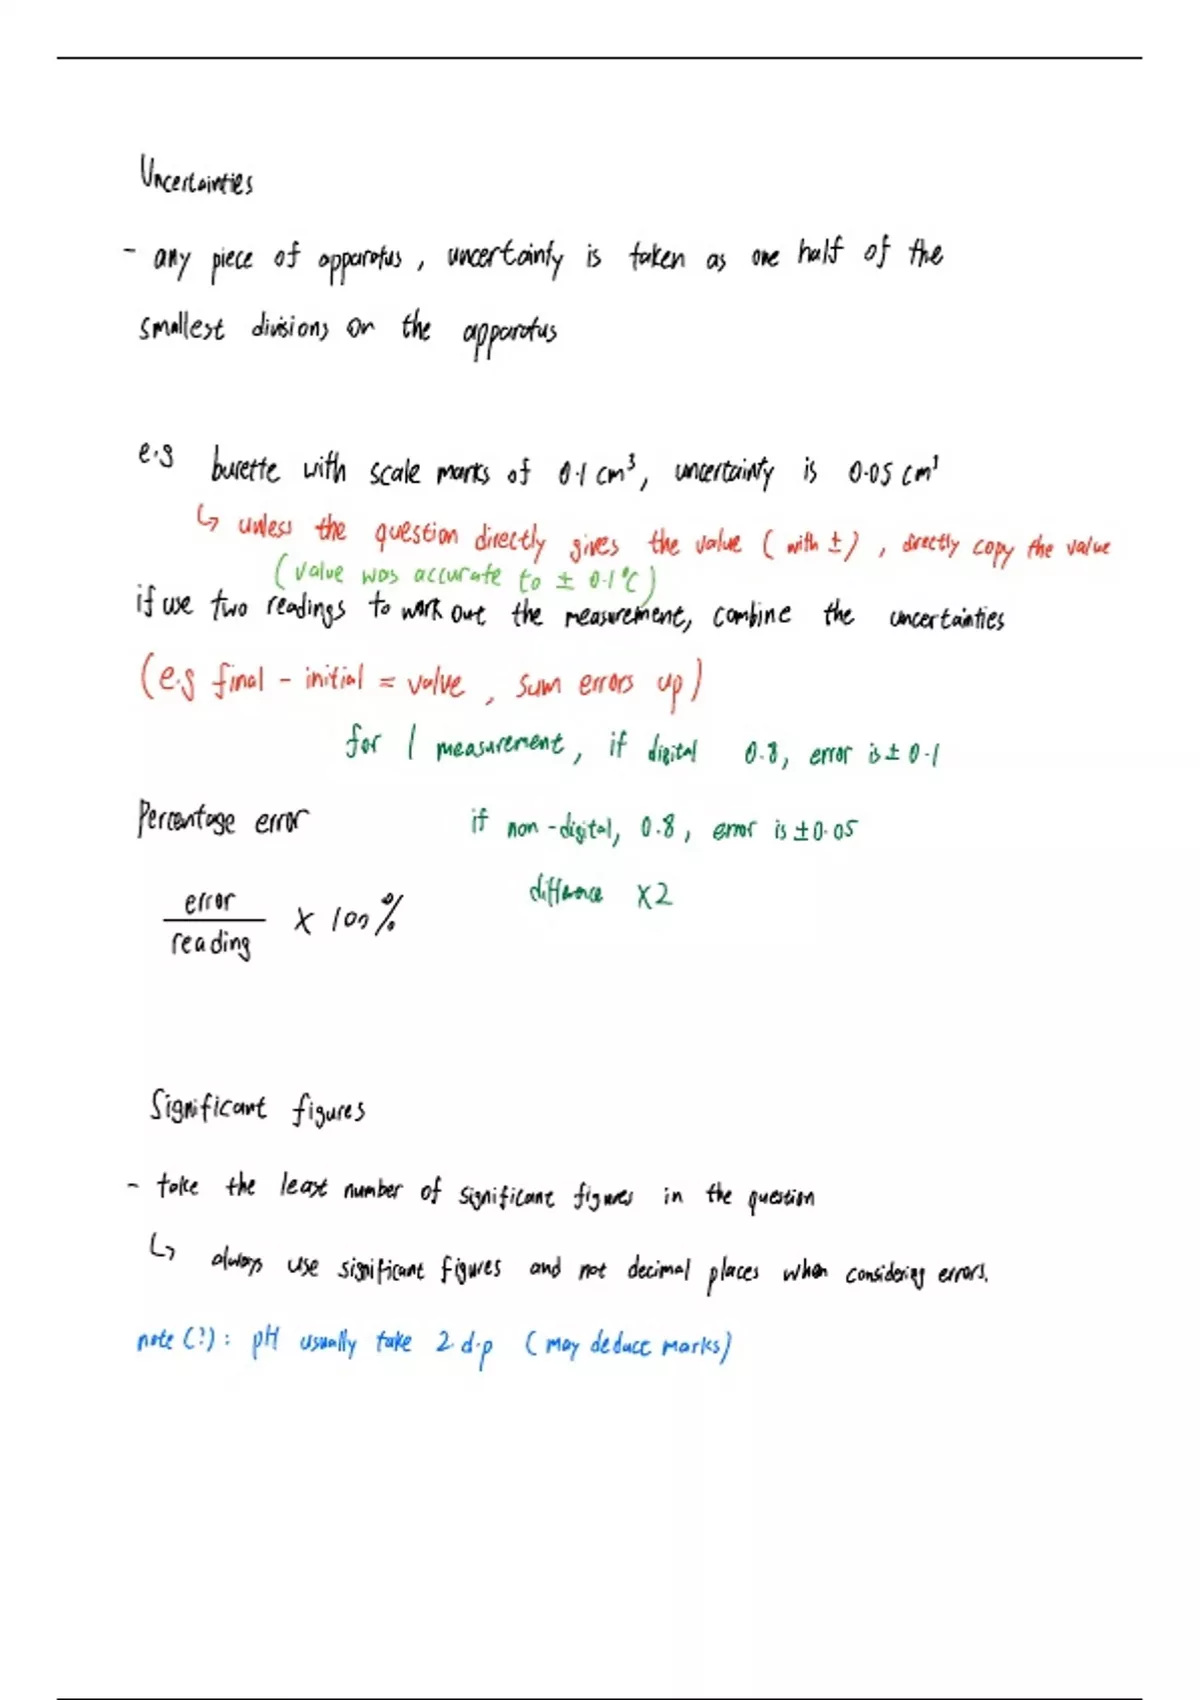 Uncertainties
- any piece of apparatus, uncertainty is taken as one half of the
smallest divisions on the apparatus
e.g burette with scale marks of 0.1 cm³, uncertainty is 0.05 cm³
↳ unless the question directly gives the value (with ±), directly copy the value
(value was accurate to ± 0.1°C)
if use two readings to work out the measurement, combine the uncertainties
(e.g final - initial = value, sum errors up)
for 1 measurement, if digital 0.8, error is ± 0.1
Percentage error
if non-digital, 0.8, error is ±0.05
difference ×2
error
reading
× 100%
Significant figures
- take the least number of significant figures in the question
↳ always use significant figures and not decimal places when considering errors.
note (?): pH usually take 2 d.p (may deduct marks)